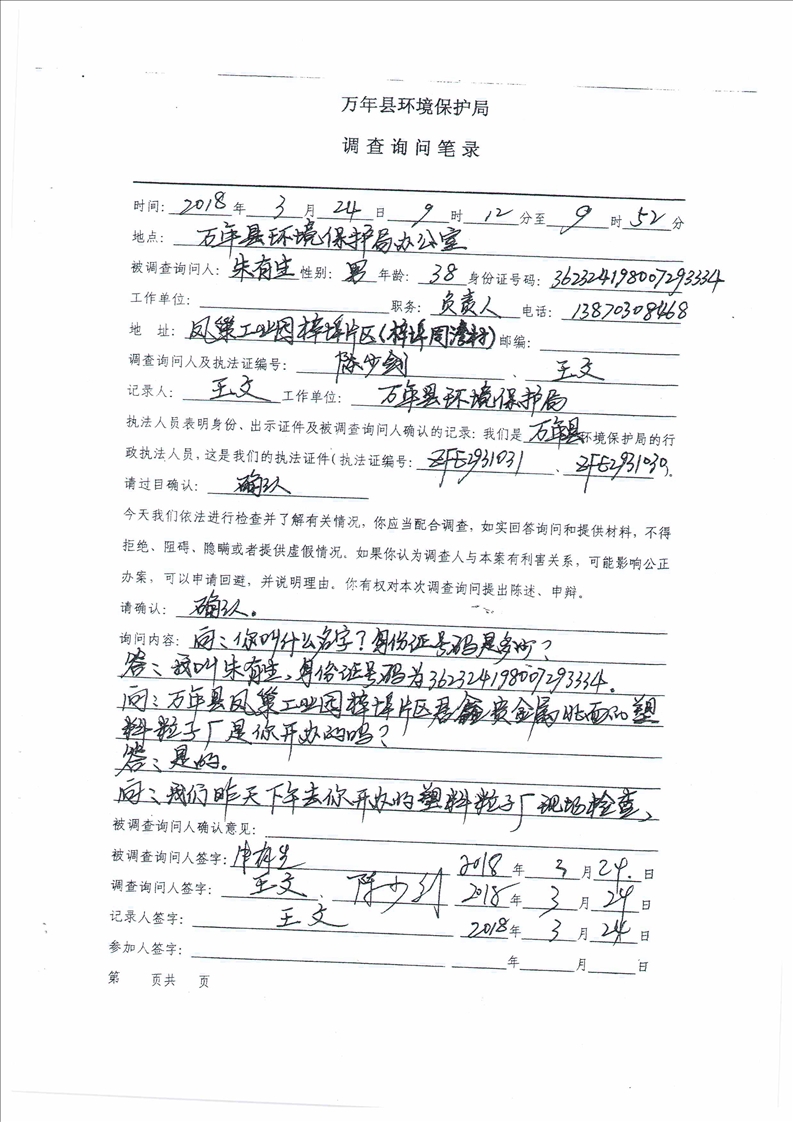 万年县环境保护局
调查询问笔录
时间: 2018 年 3 月 24 日 9 时 12 分至 9 时 52 分
地点: 万年县环境保护局办公室
被调查询问人: 朱有生 性别: 男 年龄: 38 身份证号码: 362324198007293334
工作单位: 职务: 负责人 电话: 13870308468
地 址: 凤巢工业园梓埠片区(梓埠周湾村) 邮编:
调查询问人及执法证编号: 陈少剑 、 王文
记录人: 王文 工作单位: 万年县环境保护局
执法人员表明身份、出示证件及被调查询问人确认的记录: 我们是 万年县 环境保护局的行
政执法人员, 这是我们的执法证件(执法证编号: ZFE2931031 、 ZFE2931030).
请过目确认: 确认
今天我们依法进行检查并了解有关情况, 你应当配合调查, 如实回答询问和提供材料, 不得
拒绝、阻碍、隐瞒或者提供虚假情况。如果你认为调查人与本案有利害关系, 可能影响公正
办案, 可以申请回避, 并说明理由。你有权对本次调查询问提出陈述、申辩。
请确认: 确认。
询问内容: 问: 你叫什么名字? 身份证号码是多少?
答: 我叫朱有生, 身份证号码为362324198007293334.
问: 万年县凤巢工业园梓埠片区君鑫贵金属北面的塑
料粒子厂是你开办的吗?
答: 是的。
问: 我们昨天下午去你开办的塑料粒子厂现场检查、
被调查询问人确认意见:
被调查询问人签字: 朱有生 2018 年 3 月 24 日
调查询问人签字: 王文 、 陈少剑 2018 年 3 月 24 日
记录人签字: 王文 2018 年 3 月 24 日
参加人签字: 年 月 日
第 页共 页